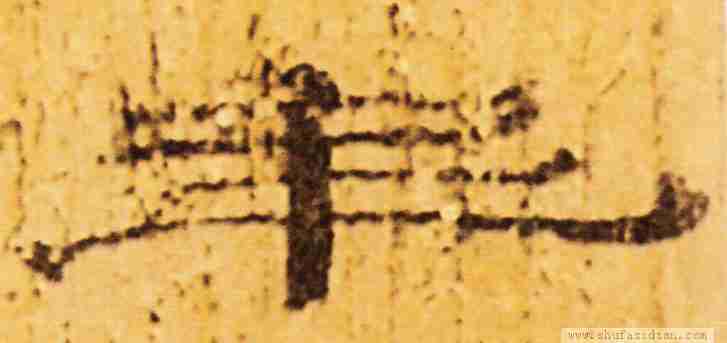 年
www.shufazidian.com